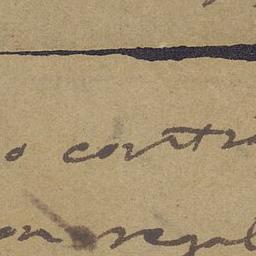 o contr
on regal